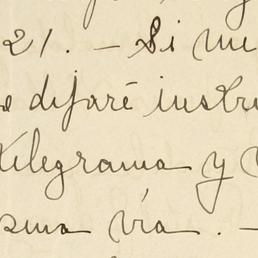 21. - Si me
dejaré instru
telegrama y
sma vía. -